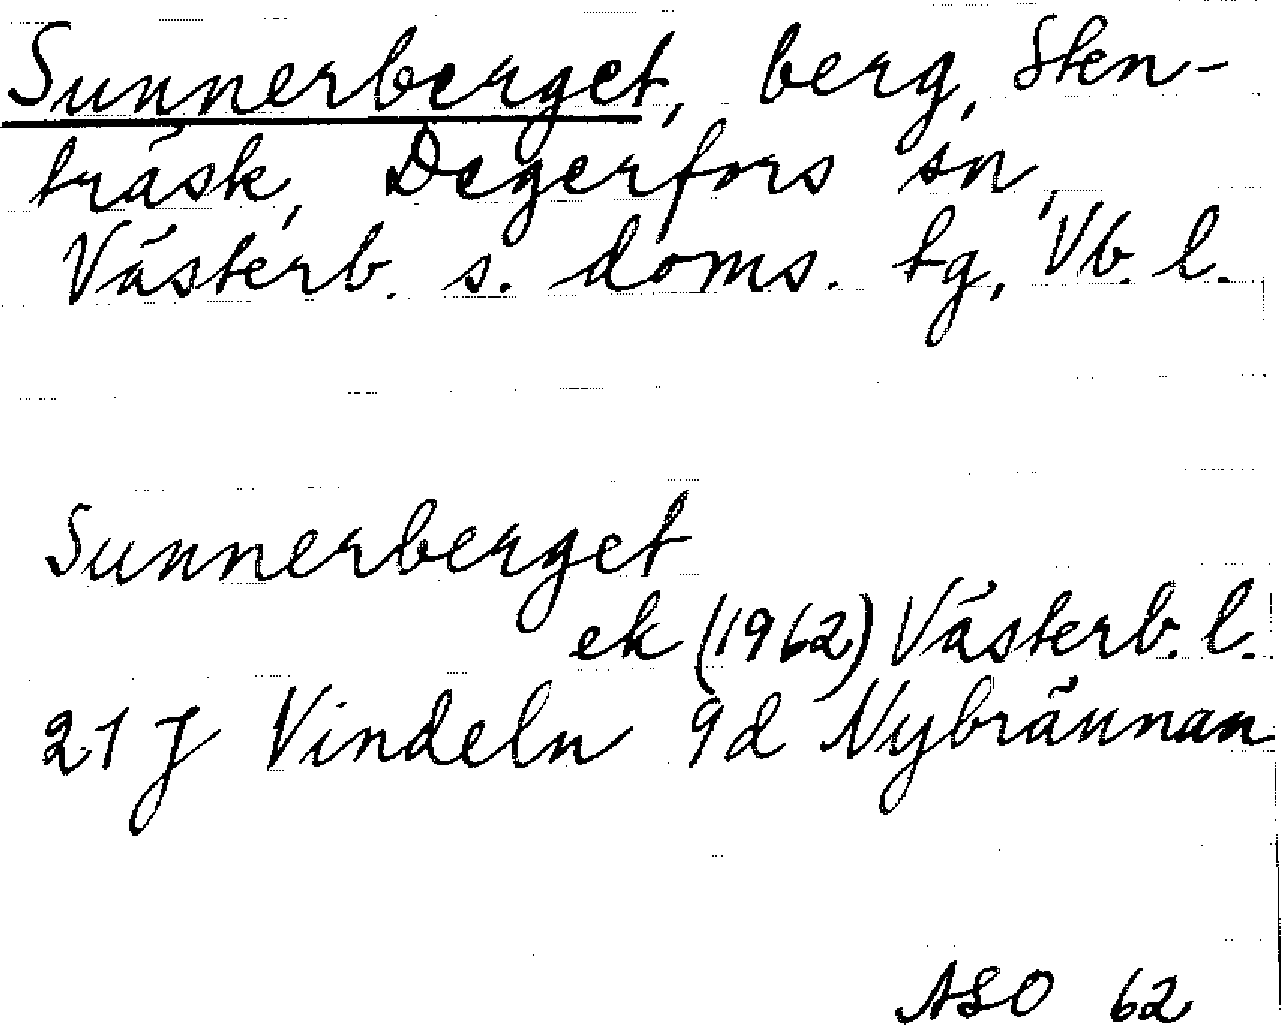 Sunnerberget, berg, Sten-
träsk, Degerfors sn,
Västerb. s. doms. tg, Vb. l.
Sunnerberget
ek (1962) Västerb. l.
21 J Vindeln 9d Nybrännan
ASO 62